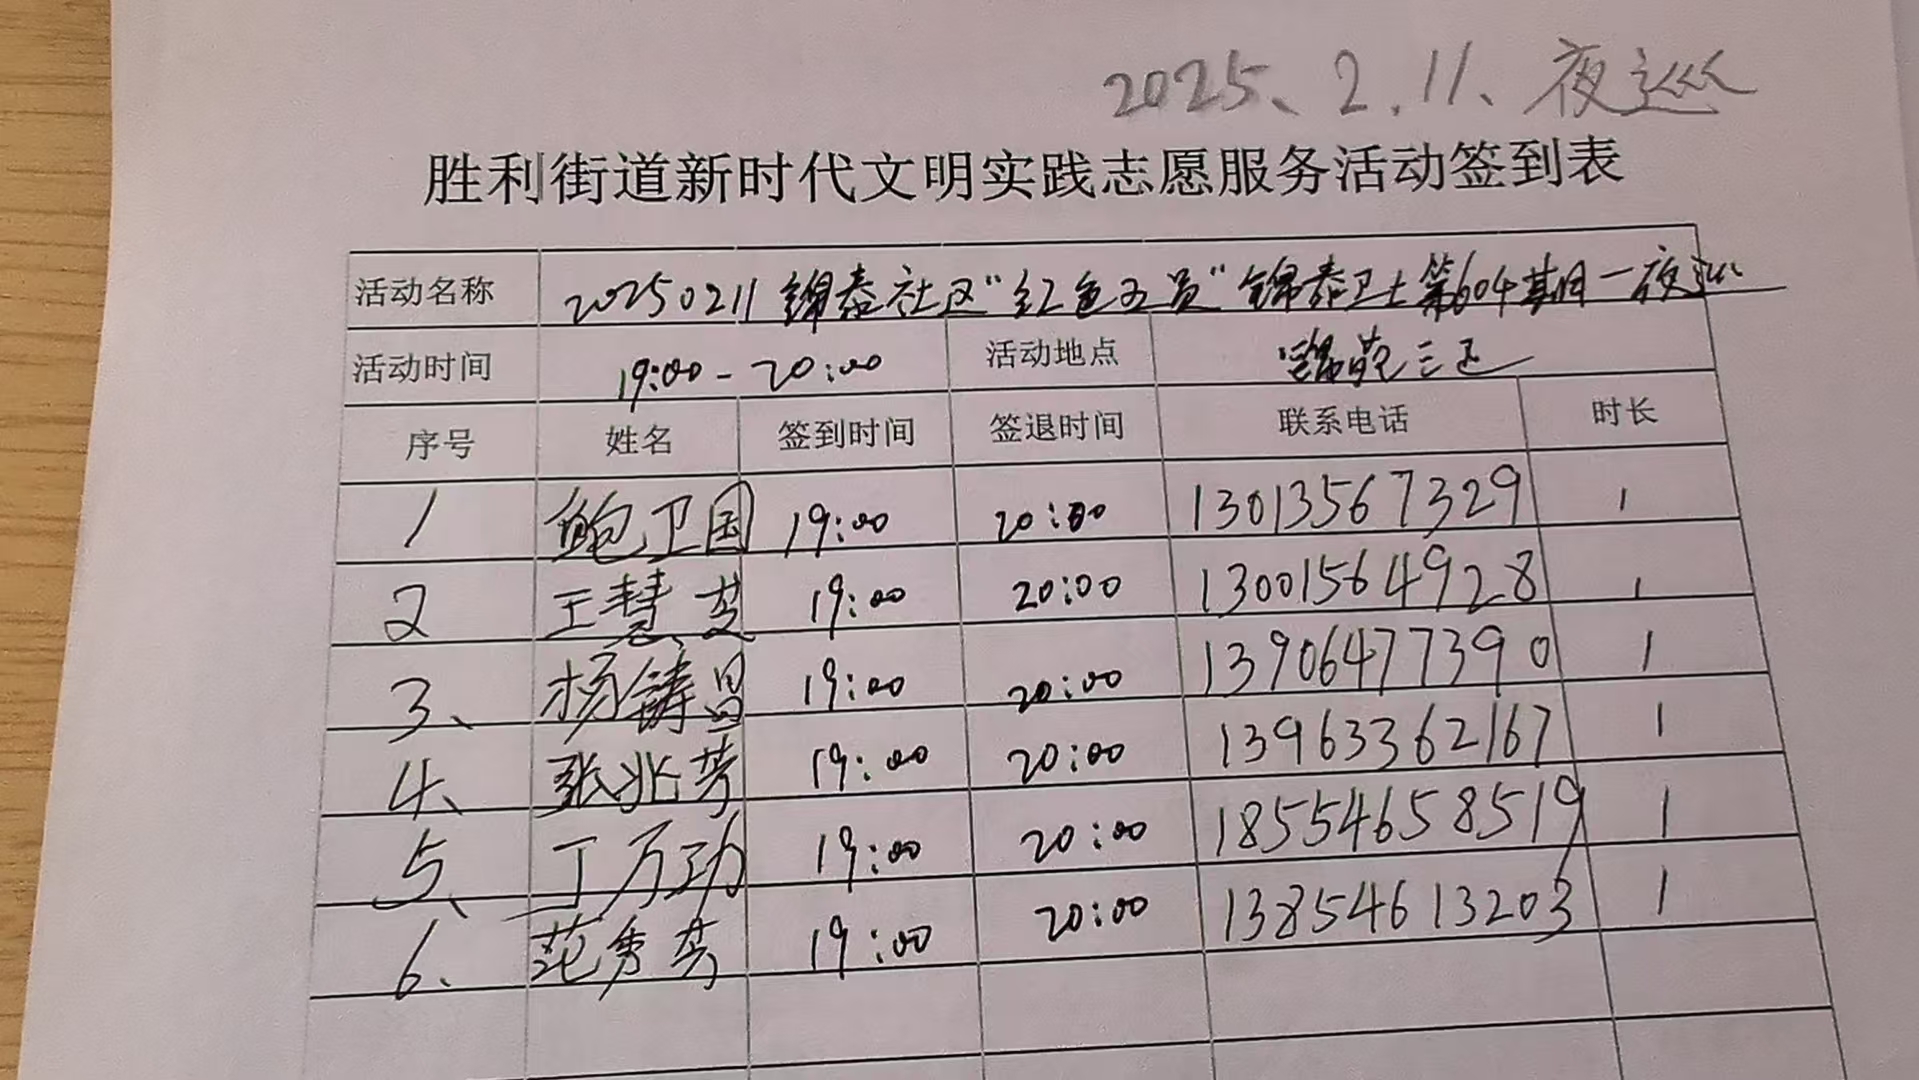 2025、2.11、夜巡
胜利街道新时代文明实践志愿服务活动签到表
活动名称 20250211锦泰社区“红色五员”锦泰卫士第604期一夜巡
活动时间 19:00-20:00 活动地点 锦苑三区
序号 姓名 签到时间 签退时间 联系电话 时长
1 鲍卫国 19:00 20:00 13013567329 1
2 王慧芝 19:00 20:00 13001564928 1
3、 杨铸昌 19:00 20:00 13906477390 1
4、 张兆芳 19:00 20:00 13963362167 1
5、 丁万功 19:00 20:00 18554658519 1
6. 范秀芳 19:00 20:00 13854613203 1